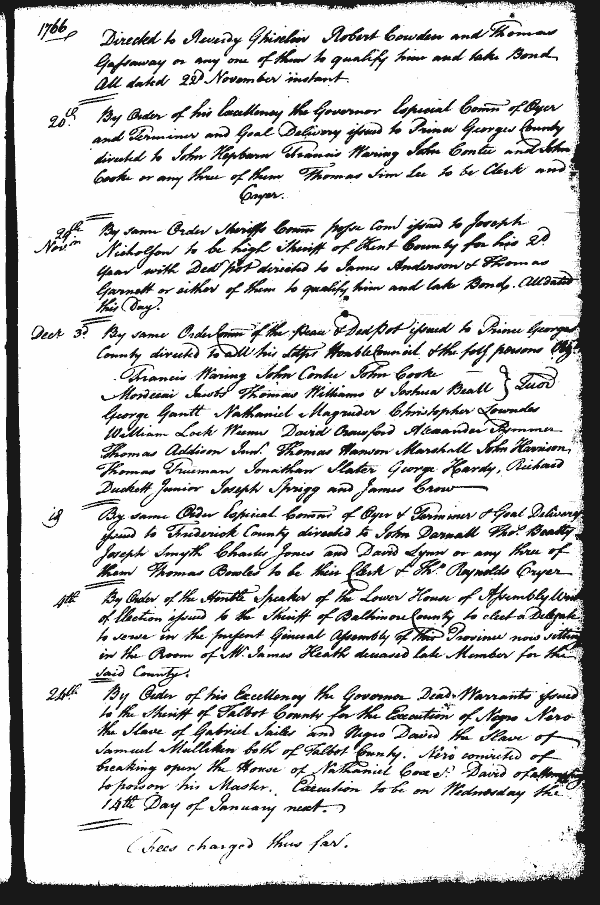 1766
Directed to Reverdy Ghiselin Robert Cowden and Thomas
Gassaway or any one of them to qualify him and take Bond
All dated 22d November instant
20th. By Order of his Excellency the Governor Especial Comn of Oyer
and Terminer and Goal Delivery issued to Prince Georges County
directed to John Hepburn Francis Waring John Contee and John
Cooke or any three of them Thomas Sim Lee to be Clerk and
Cryer.
29th Novr in By same Order Sheriffs Comn posse Com issued to Joseph
Nicholson to be high Sheriff of Kent County for his 2d
Year with Ded Pot directed to James Anderson & Thomas
Garnett or either of them to qualify him and take Bond. All dated
this Day.
Decr 3d By same Order Comn of the Peace & Ded Pot issued to Prince Georges
County directed to all his Ldps Honble Council & the folg persons
Francis Waring John Contee John Cooke
Mordecai Jacobs Thomas Williams & Joshua Beall } Quor
George Gantt Nathaniel Magruder Christopher Lowndes
William Lock Weems David Crawford Alexander Symmer
Thomas Addison Junr. Thomas Hanson Marshall John Harrison
Thomas Trueman Jonathan Slater George Hardy, Richard
Duckett Junior Joseph Sprigg and James Crow
By same Order Especial Comn of Oyer & Terminer & Goal Delivery
issued to Frederick County directed to John Darnall Thos. Beatty
Joseph Smyth Charles Jones and David Lynn or any three of
them Thomas Bowles to be their Clerk & Ths. Reynolds Cryer
4th By Order of the Honble Speaker of the Lower House of Assembly Writ
of Election issued to the Sheriff of Baltimore County to elect a Delegate
to serve in the present General Assembly of this Province now sitting
in the Room of Mr. James Heath deceased late Member for the
said County.
24th By Order of his Excellency the Governor Dead Warrants issued
to the Sheriff of Talbot County for the Execution of Negro Nero
the Slave of Gabriel Sailes and Negro David the Slave of
Samuel Mulliken both of Talbot County. Nero convicted of
breaking open the House of Nathaniel Cox &c. David of attempting
to poison his Master. Execution to be on Wednesday the
14th Day of January next.
Fees charged thus far.